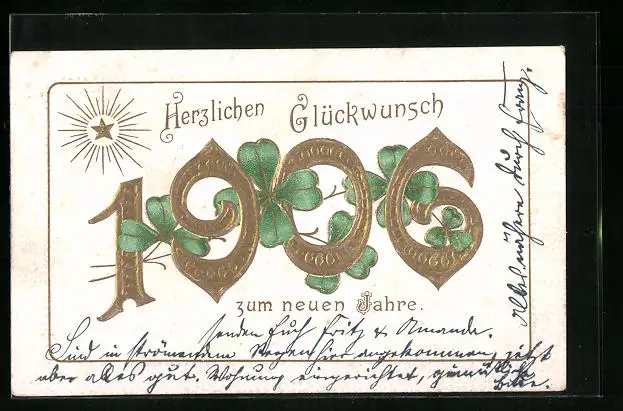 Herzlichen Glückwunsch
1906
zum neuen Jahre.
senden Euch Fritz & Amanda.
Sind in strömendem Regen hier angekommen, jetzt
aber alles gut. Wohnung eingerichtet,
bitte.
Alles nähere durch Franz.